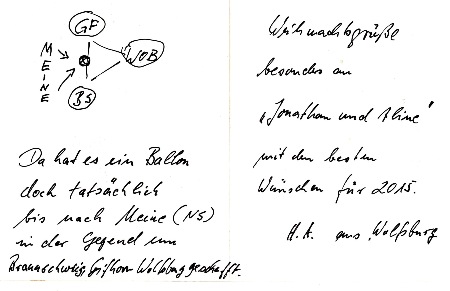 GF
MEINE
WOB
BS
Da hat es ein Ballon
doch tatsächlich
bis nach Meine (NS)
in der Gegend um
Braunschweig Gifhorn Wolfsburg geschafft.
Weihnachtsgrüße
besonders an
„Jonathan und Aline"
mit den besten
Wünschen für 2015.
H. A. aus Wolfsburg